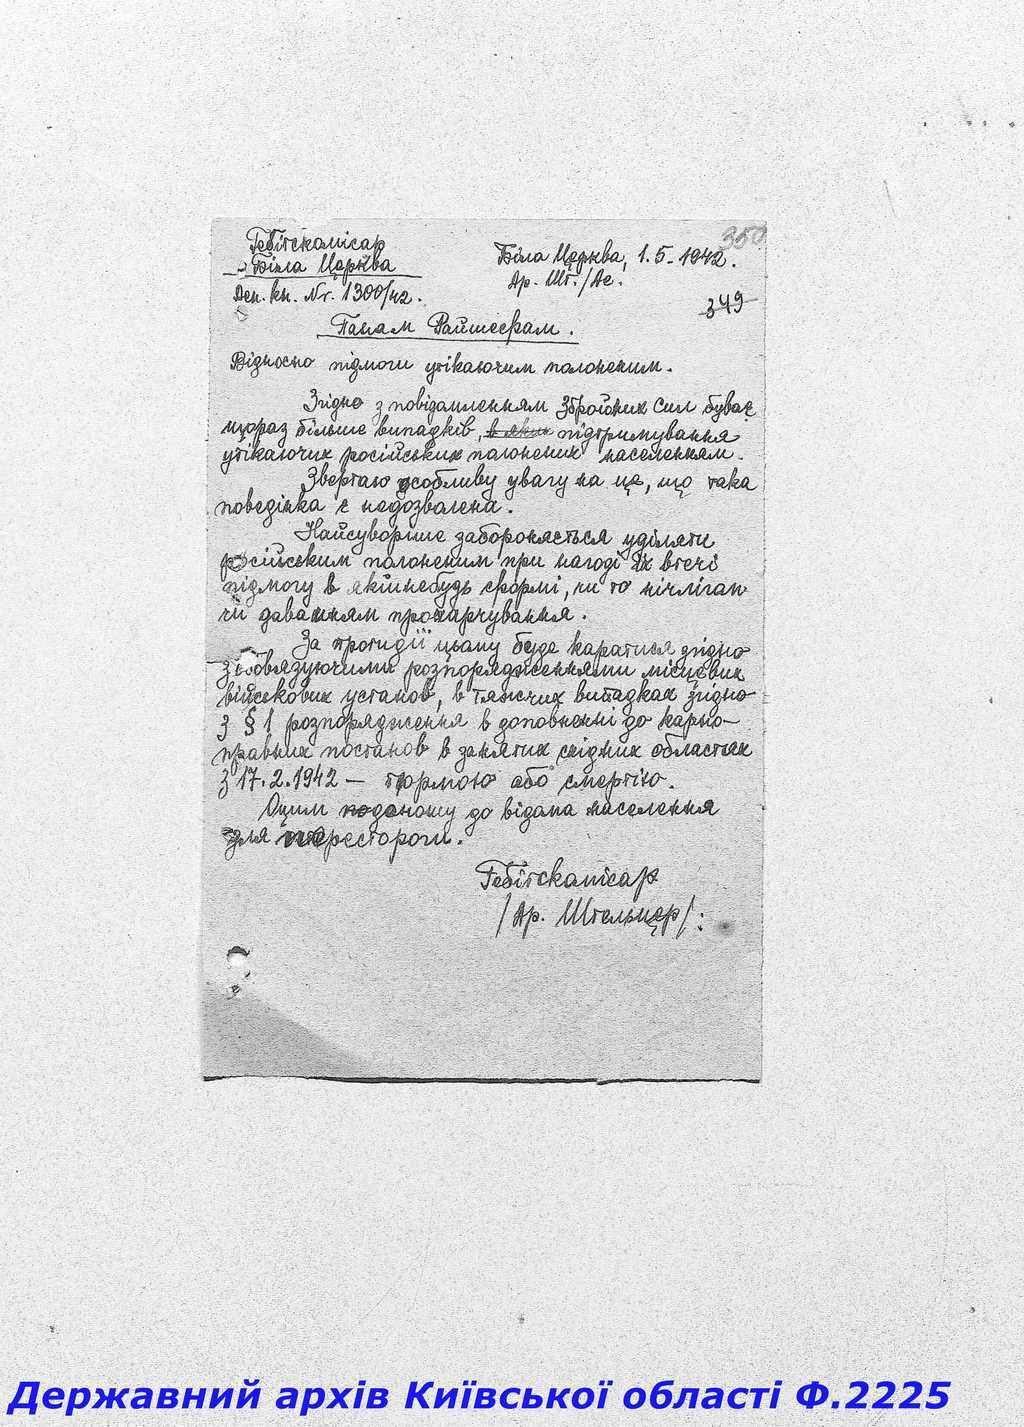 350
Гебітскомісар
Біла Церква
Біла Церква, 1.5.1942.
Др. Шт./Ас.
Ден. кн. Nr. 1300/42.
349
Панам Райшефам.
Відносно підмоги утікаючим полоненим.
Згідно з повідомленням Збройних Сил буває
щораз більше випадків, в яких підтримування
утікаючих російських полонених населенням.
Звертаю особливу увагу на це, що така
поведінка є недозволена.
Найсуворіше забороняється уділяти
російським полоненим при нагоді їх втечі
підмогу в якійнебудь формі, чи то нічлігам
чи даванням прохарчування.
За протидії цьому буде каратися згідно
з обовязуючими розпорядженнями місцевих
військових установ, в тяжчих випадках згідно
з § 1 розпорядження в доповненні до карно-
правних постанов в занятих східних областях
з 17.2.1942 — тюрмою або смертю.
Оцим доношу до відома населення
для перестороги.
Гебітскомісар
/Др. Штельцер/:
Державний архів Київської області Ф.2225